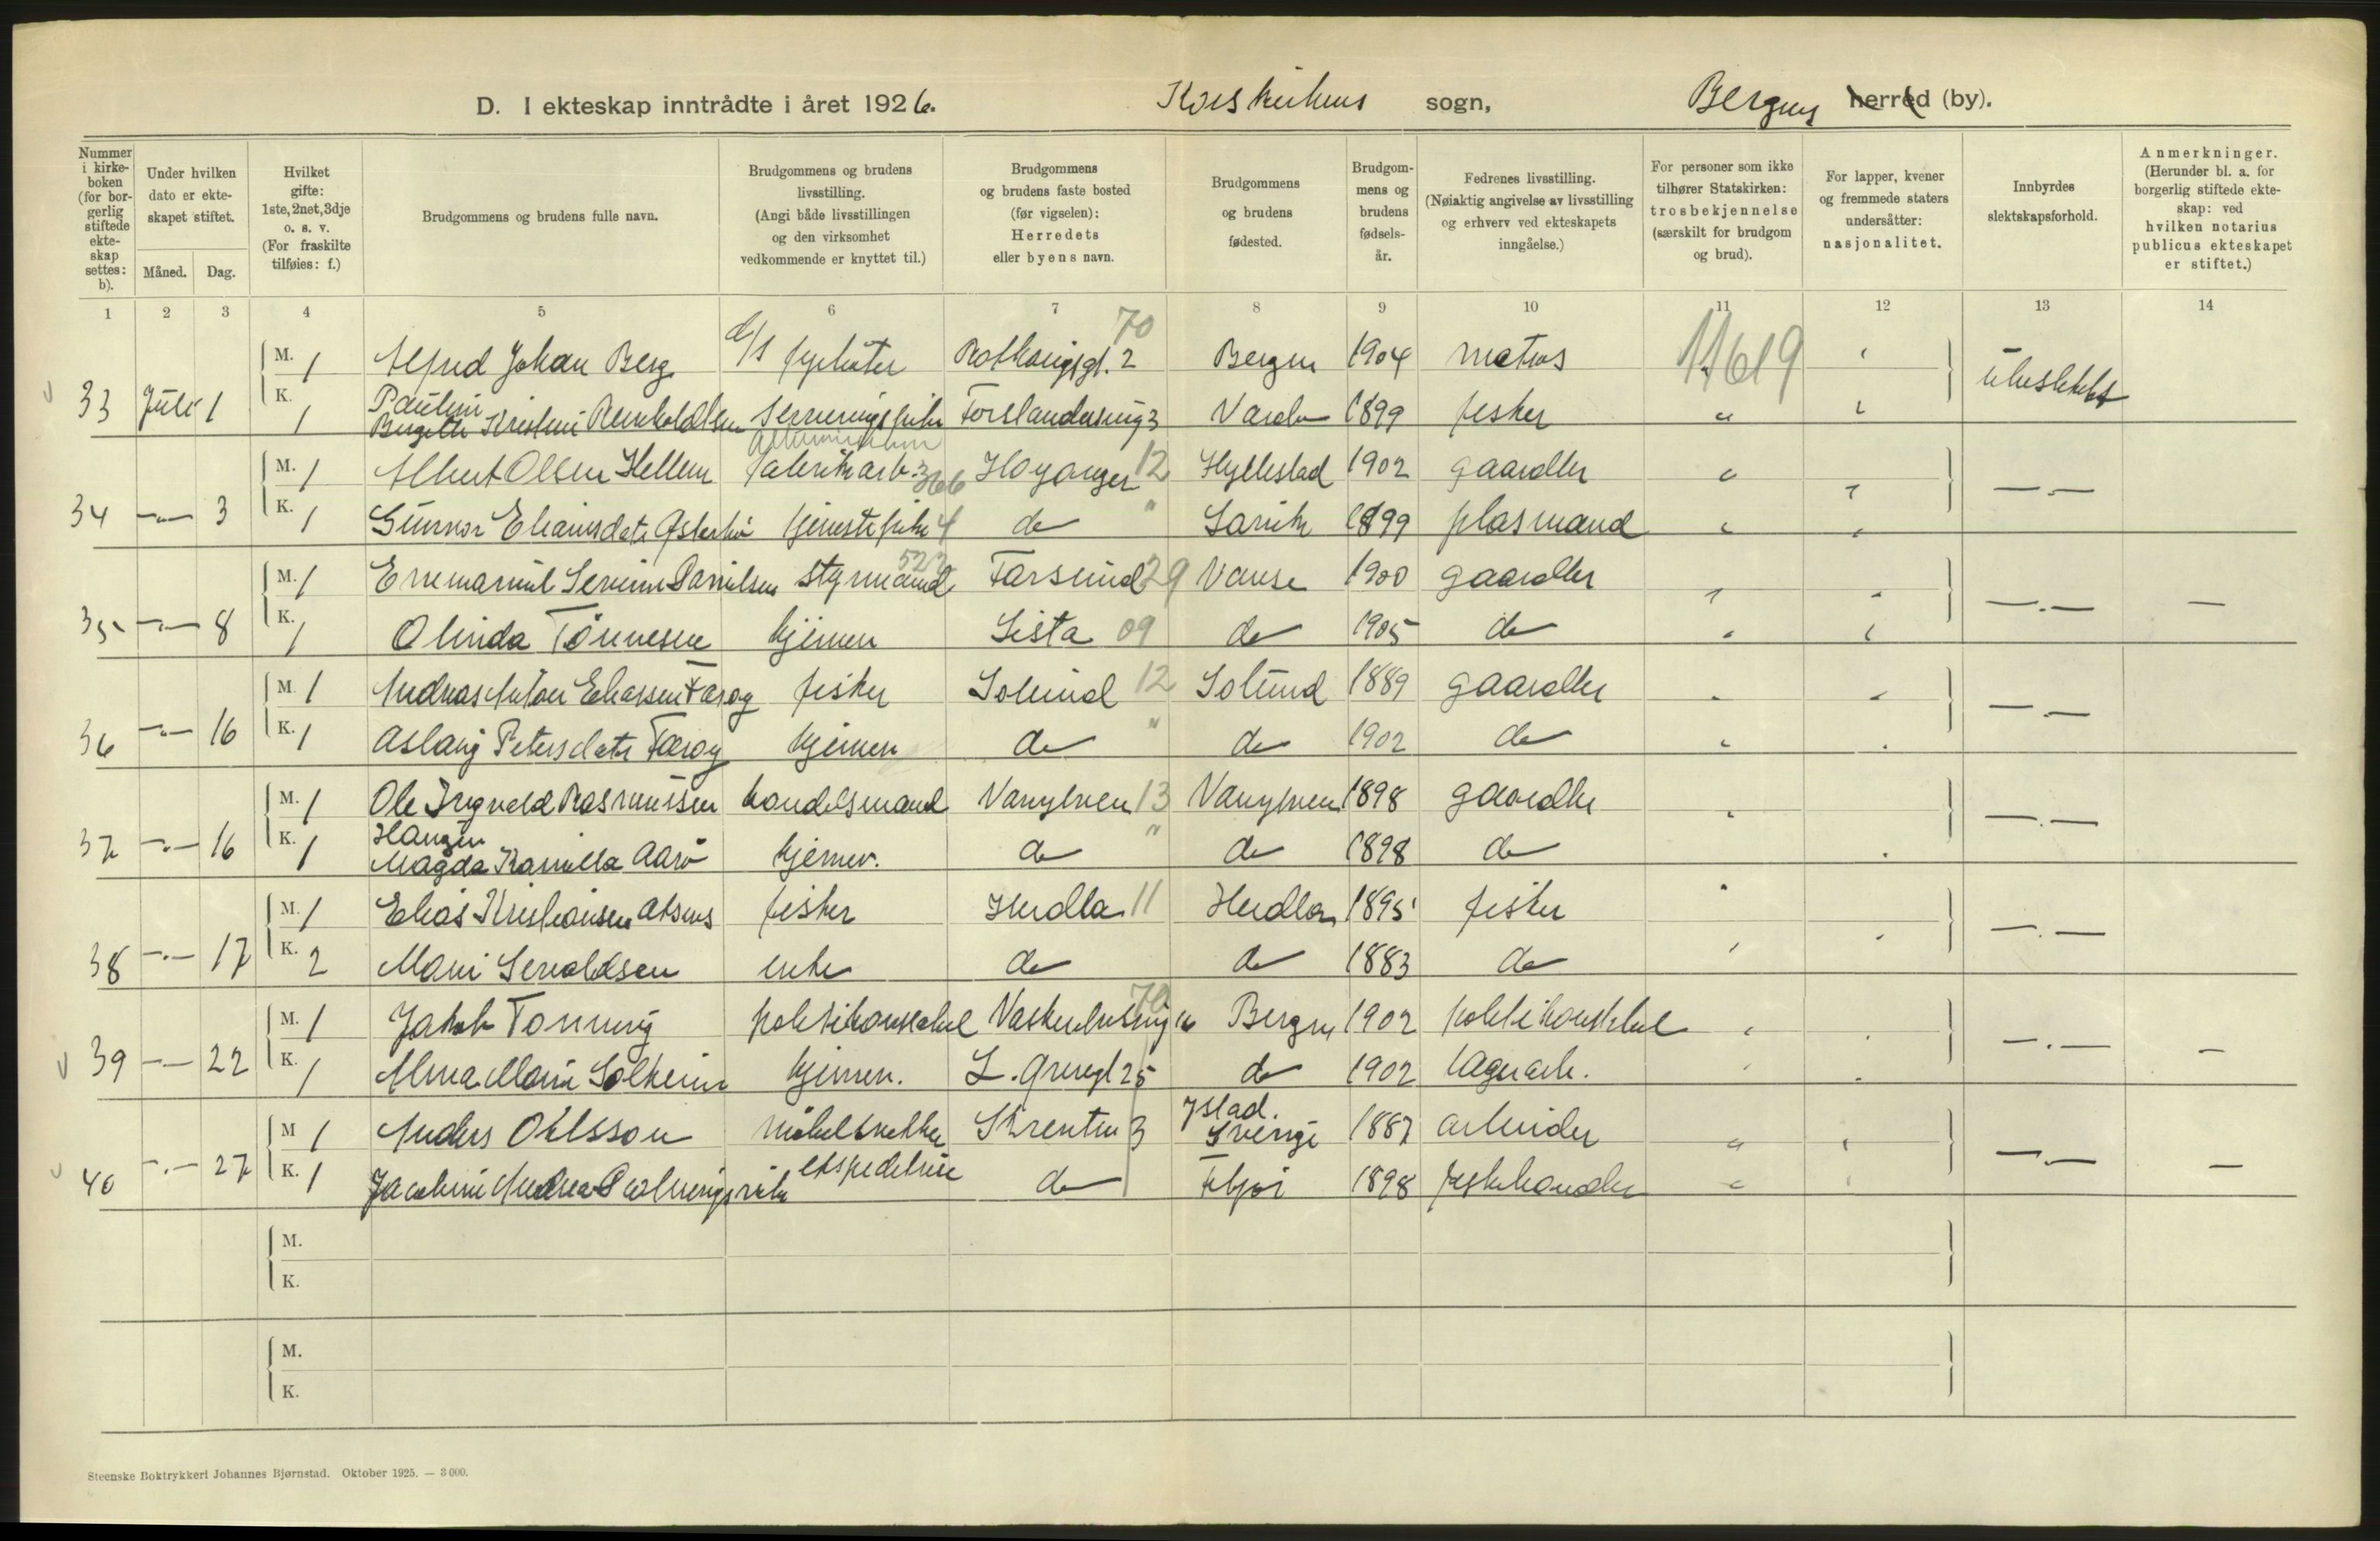 D. I ekteskap inntrådte i året 1926. Korskirkens sogn, Bergens herred (by).
Nummer i kirkeboken (for borgerlig stiftede ekteskap settes: b).
Under hvilken dato er ekteskapet stiftet.
Måned. Dag.
Hvilket gifte: 1ste, 2net, 3dje o. s. v. (For fraskilte tilføies: f.)
Brudgommens og brudens fulle navn.
Brudgommens og brudens livsstilling. (Angi både livsstillingen og den virksomhet vedkommende er knyttet til.)
Brudgommens og brudens faste bosted (før vigselen): Herredets eller byens navn.
Brudgommens og brudens fødested.
Brudgommens og brudens fødselsår.
Fedrenes livsstilling. (Nøiaktig angivelse av livsstilling og erhverv ved ekteskapets inngåelse.)
For personer som ikke tilhører Statskirken: trosbekjennelse (særskilt for brudgom og brud).
For lapper, kvener og fremmede staters undersåtter: nasjonalitet.
Innbyrdes slektskapsforhold.
Anmerkninger. (Herunder bl. a. for borgerlig stiftede ekteskap: ved hvilken notarius publicus ekteskapet er stiftet.)
1 2 3 4 5 6 7 8 9 10 11 12 13 14
M. 1 Alfred Johan Berg d/s fyrbøter 70 2 Bergen 1904 matros 11619
33 Juli 1 K. 1 Pauline Birgitte Kristine Reinholdsen Serveringspike 3 Vardø 1899 fisker ubeslektet
M. 1 Albert Olsen Hellem fabrikarb. 366 Høyanger 12 Hyllestad 1902 gaardbr
34 —„— 3 K. 1 Gunnor tjenestepike 4 do " Lavik 1899 plasmand —„—
M. 1 Emmanuel Severin Danielsen styrmand 522 Farsund 29 Vanse 1900 gaardbr
35 —„— 8 K. 1 Olinda Tönnesen hjemen Lista 09 do 1905 do —„— —
M. 1 Andreas Anton Eliassen Færøy fisker Solund 12 Solund 1889 gaardbr
36 —„— 16 K. 1 Aslaug Petersdatr Færøy hjemen do " do 1902 do —„—
M. 1 Ole Ingvald Rasmussen Haugen handelsmand Vanylven 13 Vanylven 1898 gaardbr
37 —„— 16 K. 1 Magda Kamilla Aarö hjemev. do " do 1898 do —„—
M. 1 Elias Kristiansen fisker Herdla 11 Herdla 1895 fisker
38 —„— 17 K. 2 Marie enke do do 1883 do —„—
M. 1 Jakob Tonning politikonstabel 70 16 Bergen 1902 politikonstabel
39 —„— 22 K. 1 Alma Marie Solheim hjemen. 25 do 1902 lagerarb. —„— —
M 1 Anders Ohlsson møbelsnekker Skrenten 3 Ystad. Sverige 1887 arbeider
40 —„— 27 K. 1 Jacobine Andrea ekspeditrise do 1898 fiskehandler —„— —
M.
K.
M.
K.
Steenske Boktrykkeri Johannes Bjørnstad. Oktober 1925. — 3 000.